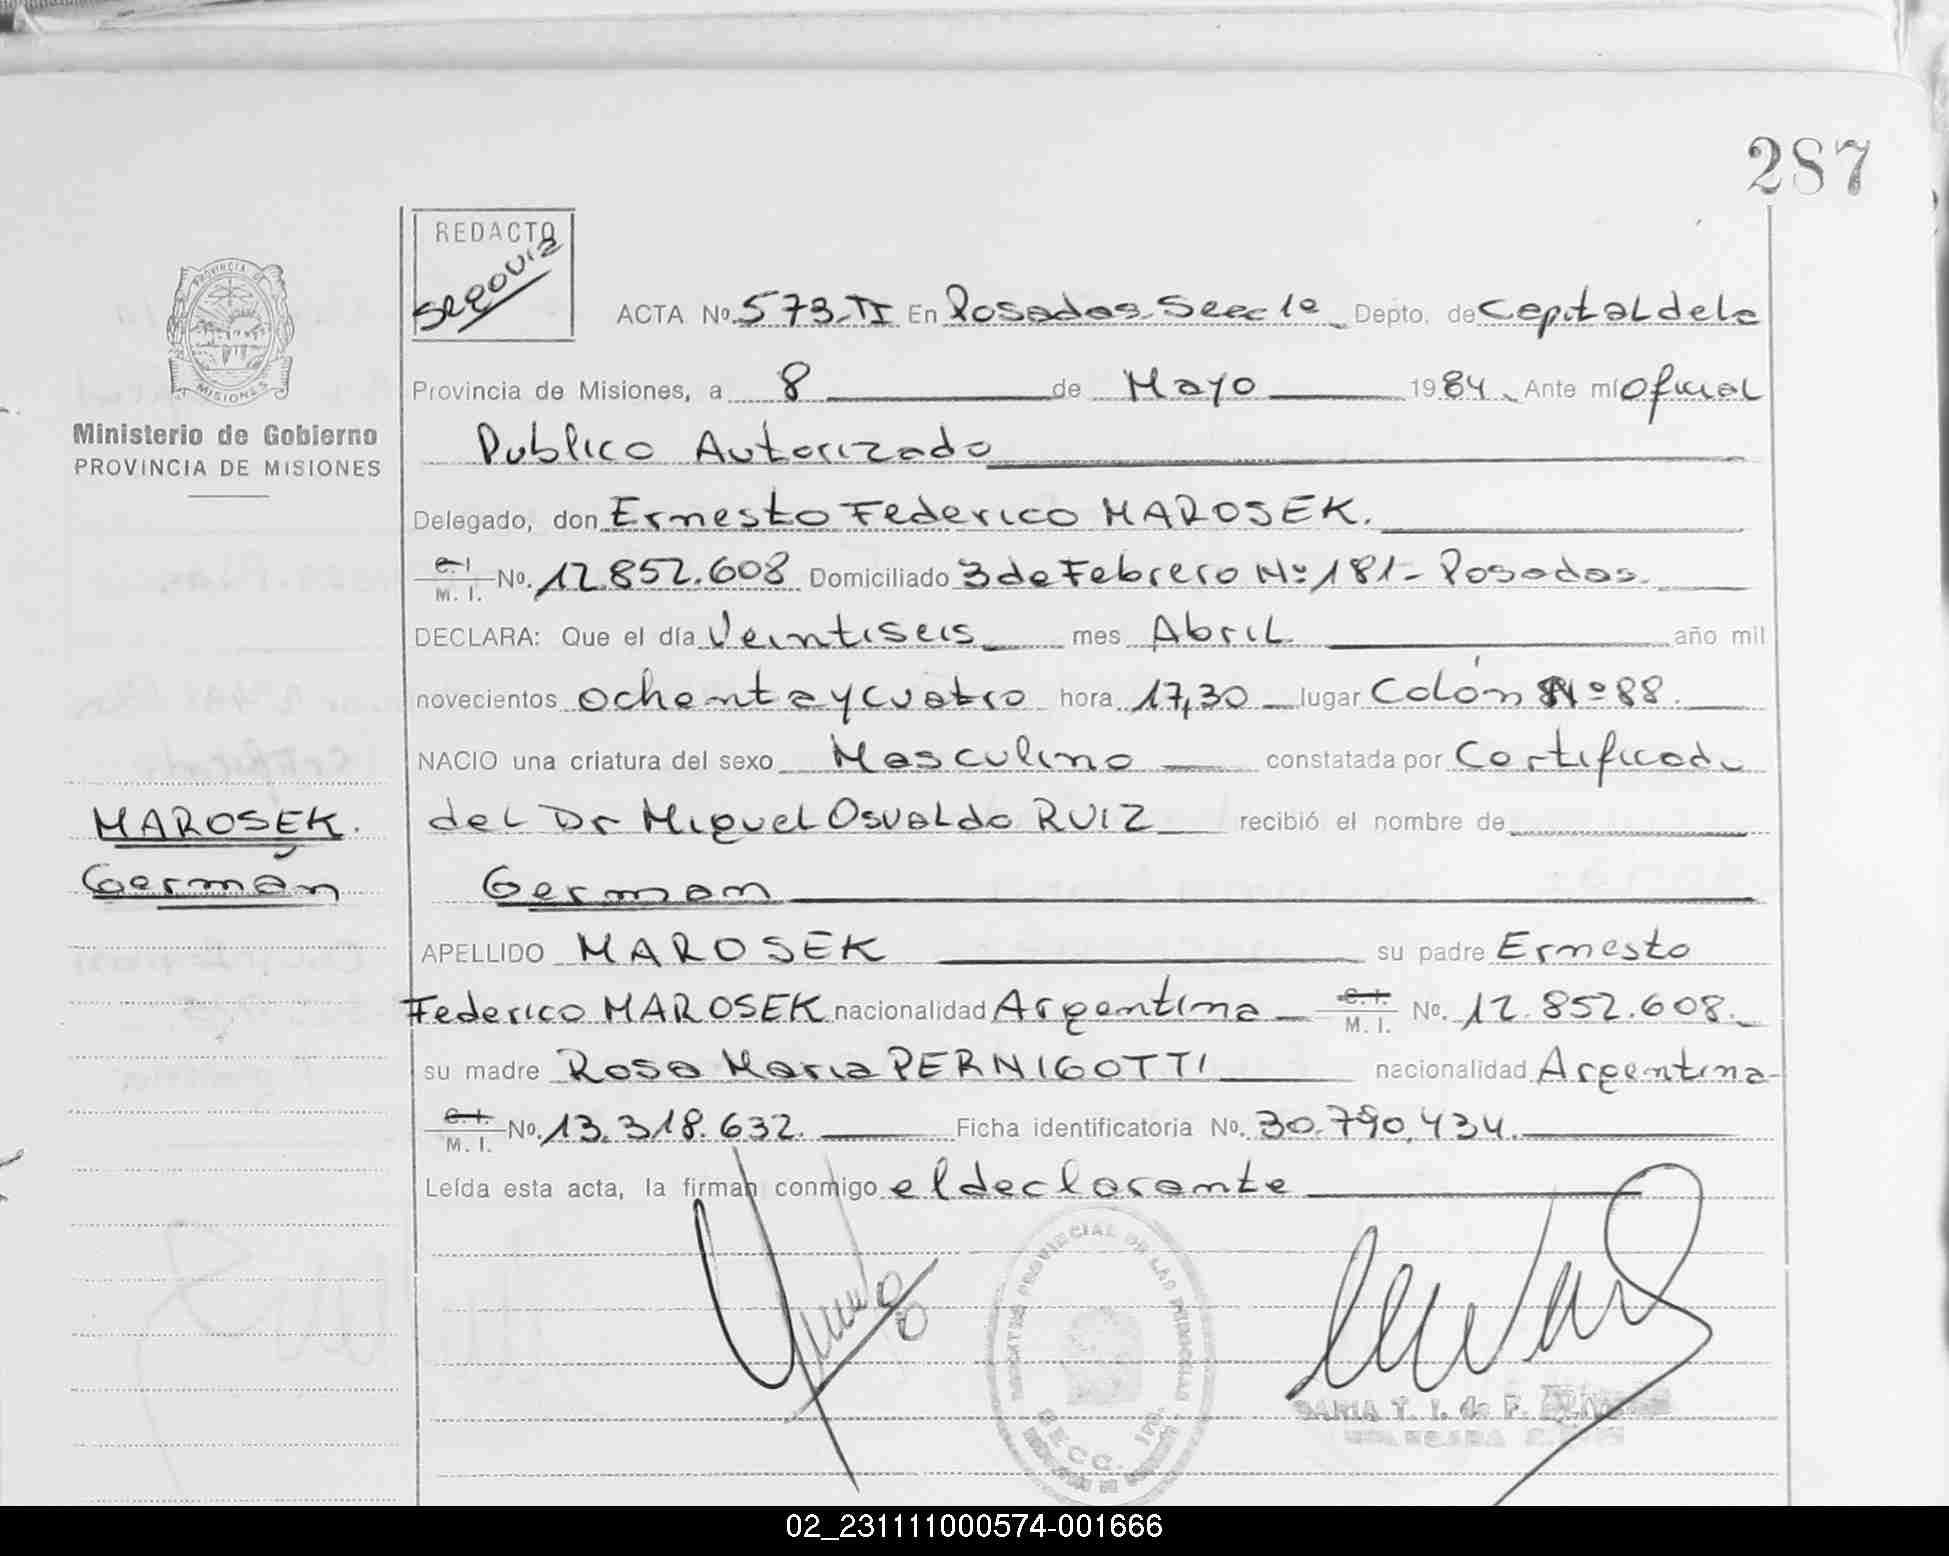 287
REDACTO
Segovia
PROVINCIA DE
MISIONES
Ministerio de Gobierno
PROVINCIA DE MISIONES
ACTA Nº. 573-TI En Posadas Secc 1ª Depto. de Capital de la
Provincia de Misiones, a 8 de Mayo 1984. Ante mí Oficial
Publico Autorizado
Delegado, don Ernesto Federico MAROSEK.
C. I. M. I. Nº. 12.852.608 Domiciliado 3 de Febrero Nº 181- Posadas.
DECLARA: Que el día Veintiseis mes Abril. año mil
novecientos ochenta y cuatro hora 17,30 lugar Colón Nº 88.
NACIO una criatura del sexo Masculino constatada por Certificado
del Dr Miguel Osvaldo RUIZ recibió el nombre de
German
MAROSEK.
Germán
APELLIDO MAROSEK su padre Ernesto
Federico MAROSEK nacionalidad Argentina C. I. M. I. Nº. 12.852.608.
su madre Rosa Maria PERNIGOTTI nacionalidad Argentina
C. I. M. I. Nº. 13.318.632. Ficha identificatoria Nº. 30.790.434.
Leída esta acta, la firman conmigo el declarante
PROVINCIAL DE LAS PERSONAS
SECC. 1ra.
02_231111000574-001666